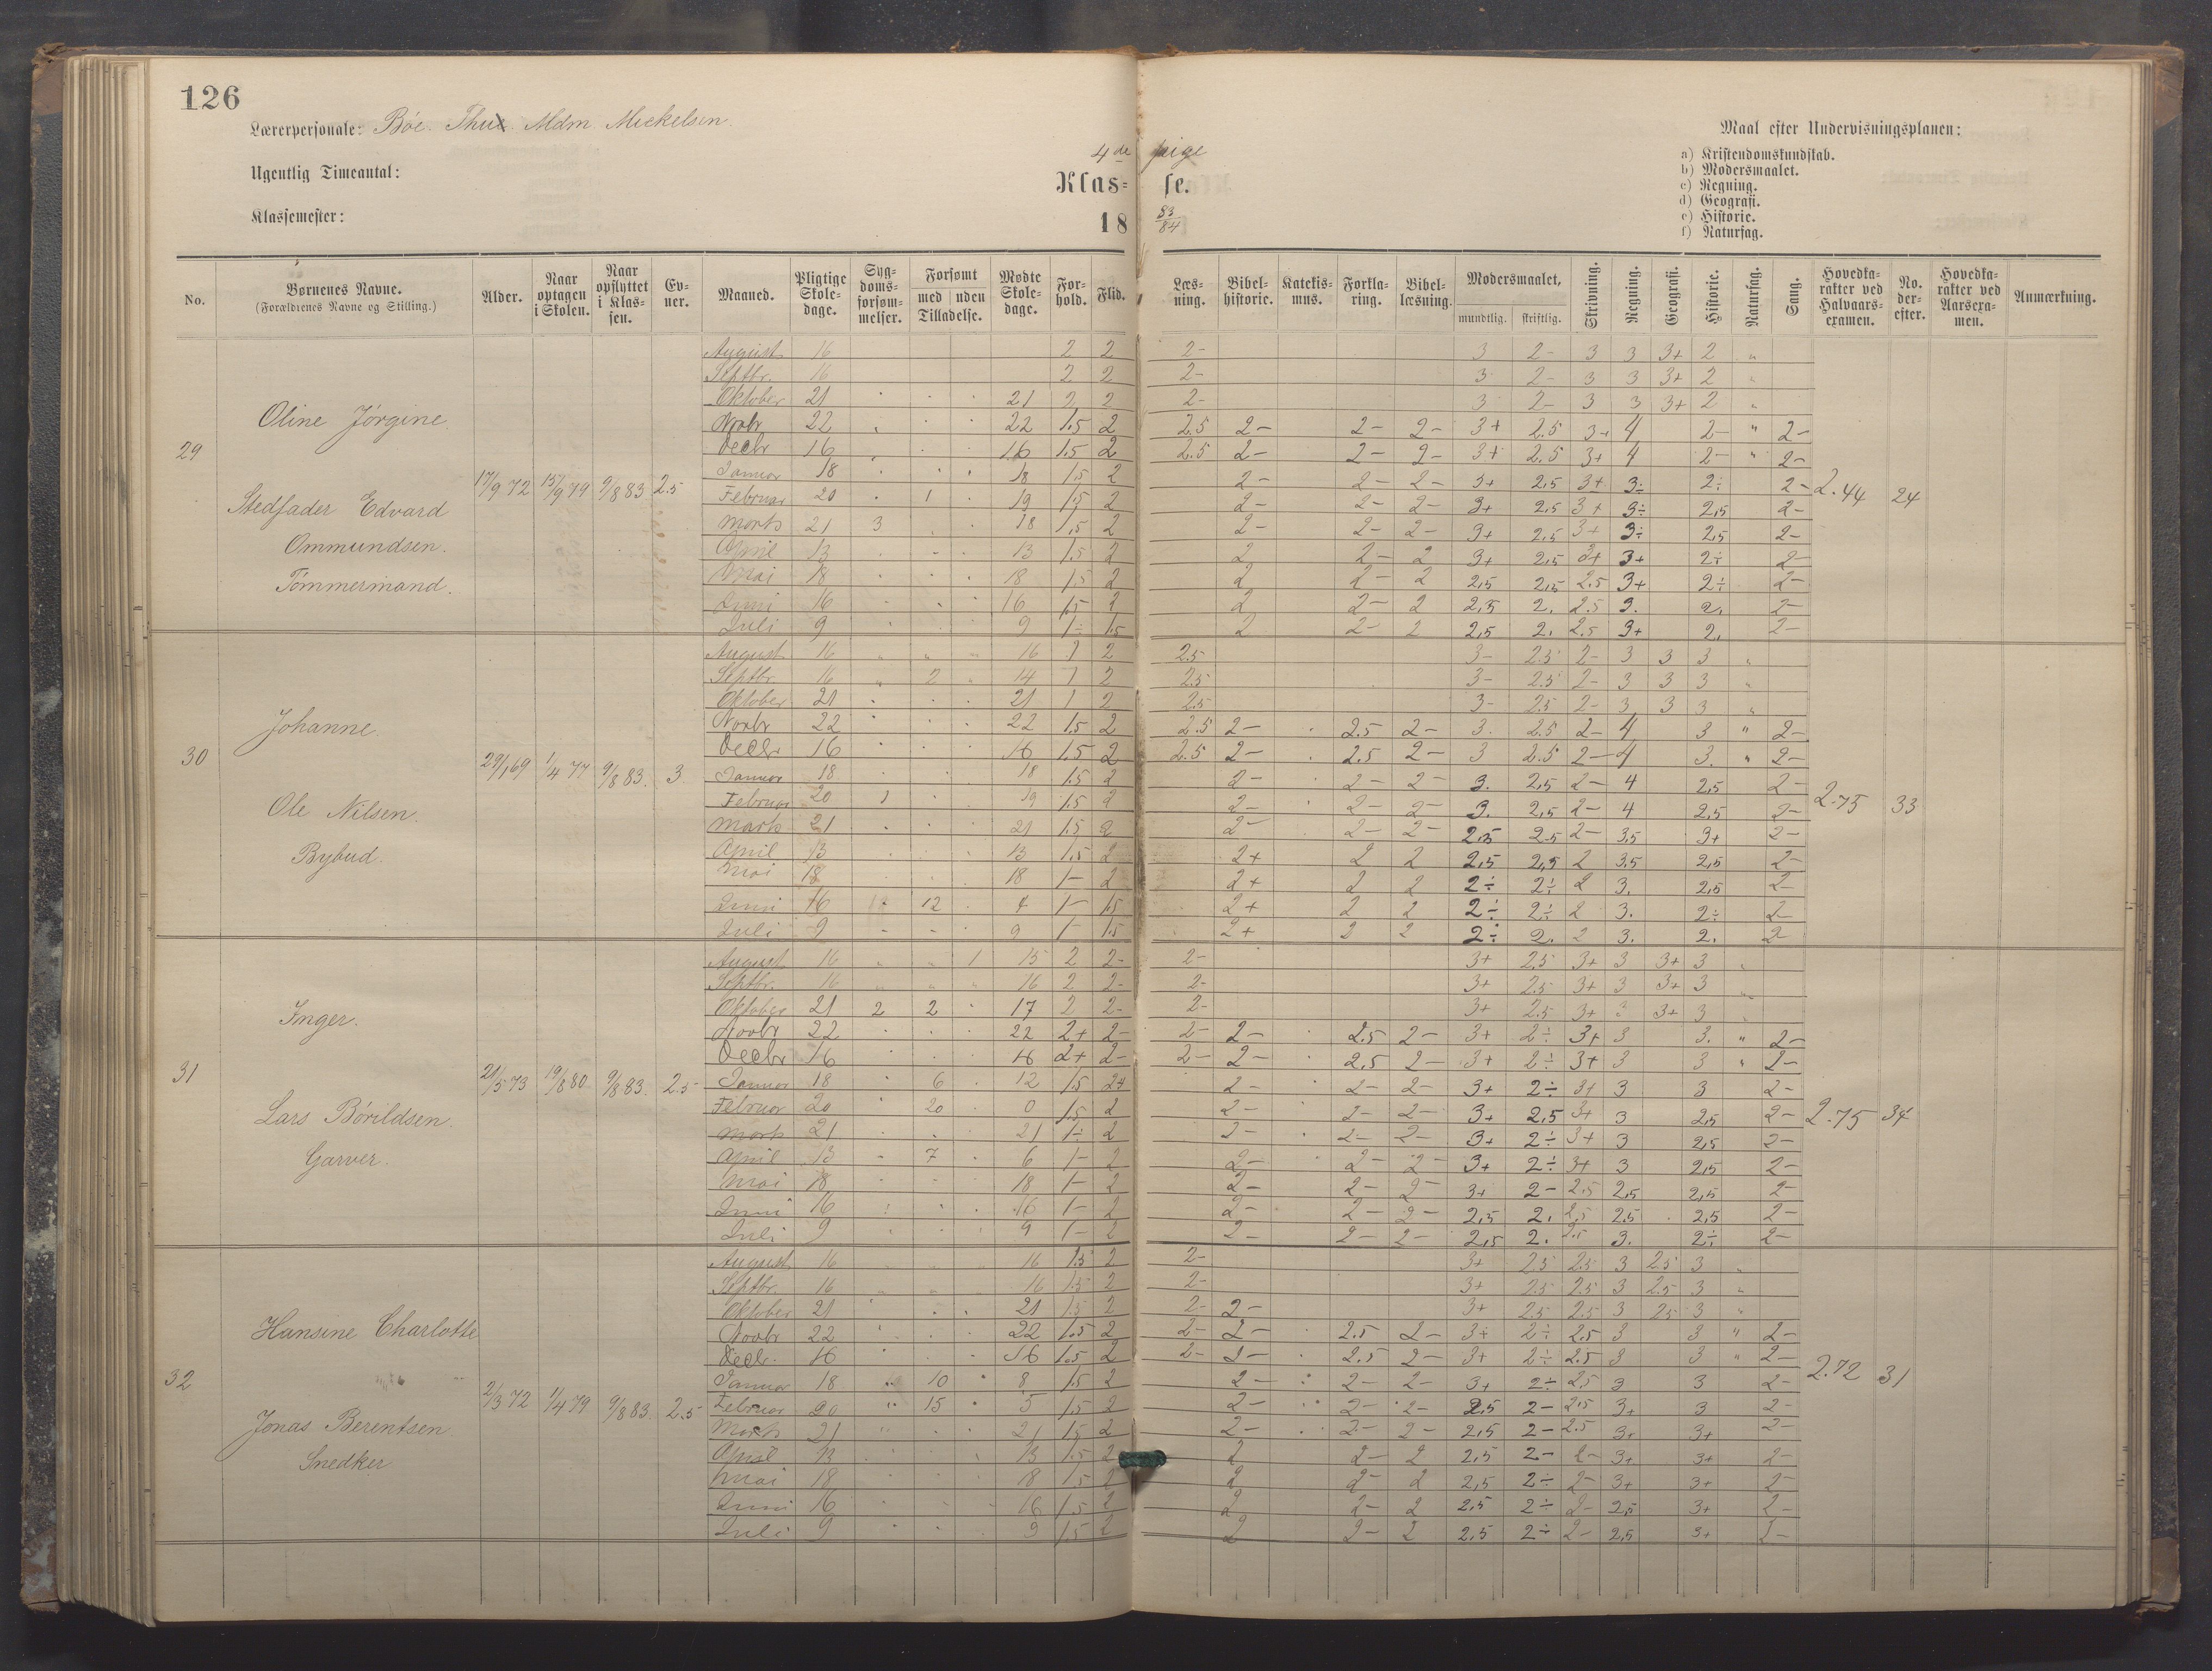 126
Lærerpersonale: Bóe. Thu. Mdm. Mickelsen.
Ugentlig Timeantal:
Klassemester:
4de pige
Klas= se.
18 83/84
Maal efter Undervisningsplanen:
a) Kristendomskundskab.
b) Modersmaalet.
c) Regning.
d) Geografi.
e) Historie.
f) Naturfag.
No. | Børnenes Navne. (Forældrenes Navne og Stilling.) | Alder. | Naar optagen i Skolen. | Naar opflyttet i Klassen. | Evner. | Maaned. | Pligtige Skoledage. | Sygdomsforsømmelser. | Forsømt med uden Tilladelse. | Mødte Skoledage. | Forhold. | Flid. | Læsning. | Bibelhistorie. | Katekismus. | Forklaring. | Bibellæsning. | Modersmaalet, mundtlig. skriftlig. | Skrivning. | Regning. | Geografi. | Historie. | Naturfag. | Sang. | Hovedkarakter ved Halvaarsexamen. | No. derefter. | Hovedkarakter ved Aarsexamen. | Anmærkning.
29 Oline Jórgine. Stedfader Edvard Ommundsen. Tómmermand. 17/9 72 15/9 79 9/8 83 2.5 2.44 24
August 16 2 2 2- 3 2- 3 3 3+ 2 "
Septbr. 16 2 2 2- 3 2- 3 3 3+ 2 "
Oktober 21 21 2 2 2- 3 2- 3 3 3+ 2 "
Novbr 22 22 1.5 2 2.5 2- 2- 2- 3+ 2.5 3+ 4 2- " 2-
Decbr 16 16 1.5 2 2.5 2- 2- 2- 3+ 2.5 3+ 4 2- " 2-
Januar 18 18 1.5 2 2- 2- 2- 3+ 2,5 3+ 3÷ 2÷ 2-
Februar 20 1 19 1.5 2 2- 2- 2- 3+ 2.5 3+ 3÷ 2,5 2-
Marts 21 3 18 1.5 2 2- 2- 2- 3+ 2,5 3+ 3÷ 2,5 2-
April 13 13 1.5 2 2 2- 2 3+ 2,5 3+ 3+ 2÷ 2-
Mai 18 18 1.5 2 2 2- 2 2,5 2,5 2.5 3+ 2÷ 2-
Juni 16 16 1.5 2 2 2- 2 2,5 2. 2.5 3. 2. 2-
Juli 9 9 1÷ 1.5 2 2- 2 2,5 2. 2.5 3+ 2. 2-
30 Johanne. Ole Nilsen. Bybud. 29/1 69 1/4 77 9/8 83. 3. 2.75 33
August 16 " " " 16 1 2 2.5 3- 2.5 2- 3 3 3 "
Septbr. 16 " 2 14 1 2 2.5 3- 2.5 2- 3 3 3 "
Oktober 21 21 1 2 2.5 3- 2.5 2- 3 3 3 "
Novbr 22 22 1.5 2 2.5 2- 2.5 2- 3. 2.5 2- 4 3 " 2-
Decbr 16 16 1.5 2 2.5 2- 2.5 2- 3 2.5 2- 4 3. " 2-
Januar 18 18 1.5 2 2- 2- 2- 3. 2,5 2- 4 2,5 2-
Februar 20 1 19 1.5 2 2- 2- 2- 3. 2,5 2- 4 2,5 2-
Marts 21 21 1.5 2 2- 2- 2- 2,5 2.5 2- 3,5 3+ 2-
April 13 13 1.5 2 2+ 2 2 2,5 2,5 2 3.5 2,5 2-
Mai 18 18 1- 2 2+ 2 2 2÷ 2÷ 2 3. 2,5 2-
Juni 16 12 4 1- 1.5 2+ 2 2 2÷ 2÷ 2 3. 2÷ 2-
Juli 9 9 1- 1.5 2+ 2 2 2÷ 2. 2 3. 2. 2-
31 Inger. Lars Bórildsen. Garver. 21/5 73 19/8 80. 9/8 83. 2.5 2.75 34
August 16 " " 1 15 2 2- 2- 3+ 2.5 3+ 3 3+ 3 "
Septbr. 16 " " " 16 2 2- 2- 3+ 2.5 3+ 3 3+ 3 "
Oktober 21 2 2 17 2 2- 2- 3+ 2.5 3+ 3 3+ 3 "
Novbr 22 22 2+ 2- 2- 2- 2.5 2- 3+ 2÷ 3+ 3 3. " 2-
Decbr 16 16 2+ 2- 2- 2- 2.5 2- 3+ 2÷ 3+ 3 3 " 2-
Januar 18 6 12 1.5 2+ 2- 2- 2- 3+ 2÷ 3+ 3 3 2-
Februar 20 20 0 1.5 2 2- 2- 2- 3+ 2,5 3+ 3 2,5 2-
Marts 21 21 1÷ 2 2- 2- 2- 3+ 2÷ 3+ 3 2,5 2-
April 13 7 6 1- 2 2- 2- 2- 3+ 2÷ 3+ 3 2,5 2-
Mai 18 18 1- 2 2- 2- 2- 3+ 2- 2.5 2,5 2,5 2-
Juni 16 16 1- 2 2- 2- 2- 2,5 2. 2.5 2.5 2,5 2-
Juli 9 9 1- 2 2- 2- 2- 2,5 2. 2.5 3. 2÷ 2-
32 Hansine Charlotte Jonas Berentsen Snedker 2/3 72 1/4 79 9/8 83. 2.5 2.72 31
August 16 16 1.5 2 2- 3+ 2.5 2.5 3 2.5 3 "
Septbr. 16 16 1.5 2 2- 3+ 2.5 2.5 3 2.5 3 "
Oktober 21 21 1.5 2 2- 2- 3+ 2.5 2.5 3 2.5 3 "
Novbr 22 22 1.5 2 2- 2- 2.5 2- 3+ 2÷ 2.5 3 3 " 2-
Decbr. 16 16 1.5 2 2- 2- 2.5 2- 3+ 2÷ 2.5 3 3 " 2-
Januar 18 " 10 8 1.5 2 2- 2- 2- 3+ 2÷ 2.5 3 3 2-
Februar 20 " 15 5 1.5 2 2- 2- 2- 2,5 2- 2.5 3+ 3 2-
Marts 21 " 21 1.5 2 2- 2- 2- 2,5 2- 2.5 3+ 3+ 2-
April 13 13 1.5 2 2 2- 2 2,5 2- 2- 3+ 3+ 2-
Mai 18 18 1.5 2 2 2- 2 2,5 2÷ 2- 3+ 3+ 2-
Juni 16 16 1.5 2 2 2- 2 2,5 2÷ 2- 2,5 3+ 2-
Juli 9 9 1.5 2 2 2- 2 2,5 2÷ 2- 2,5 3+ 2-